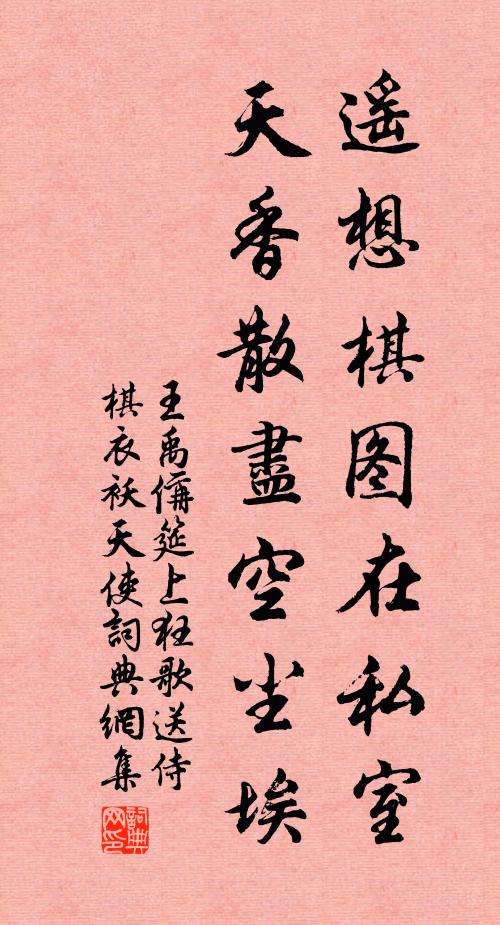 遥想棋图在私室
天香散盡空尘埃
王禹偁筵上狂歌送侍
棋衣袄天使詞典網集
詞典网印